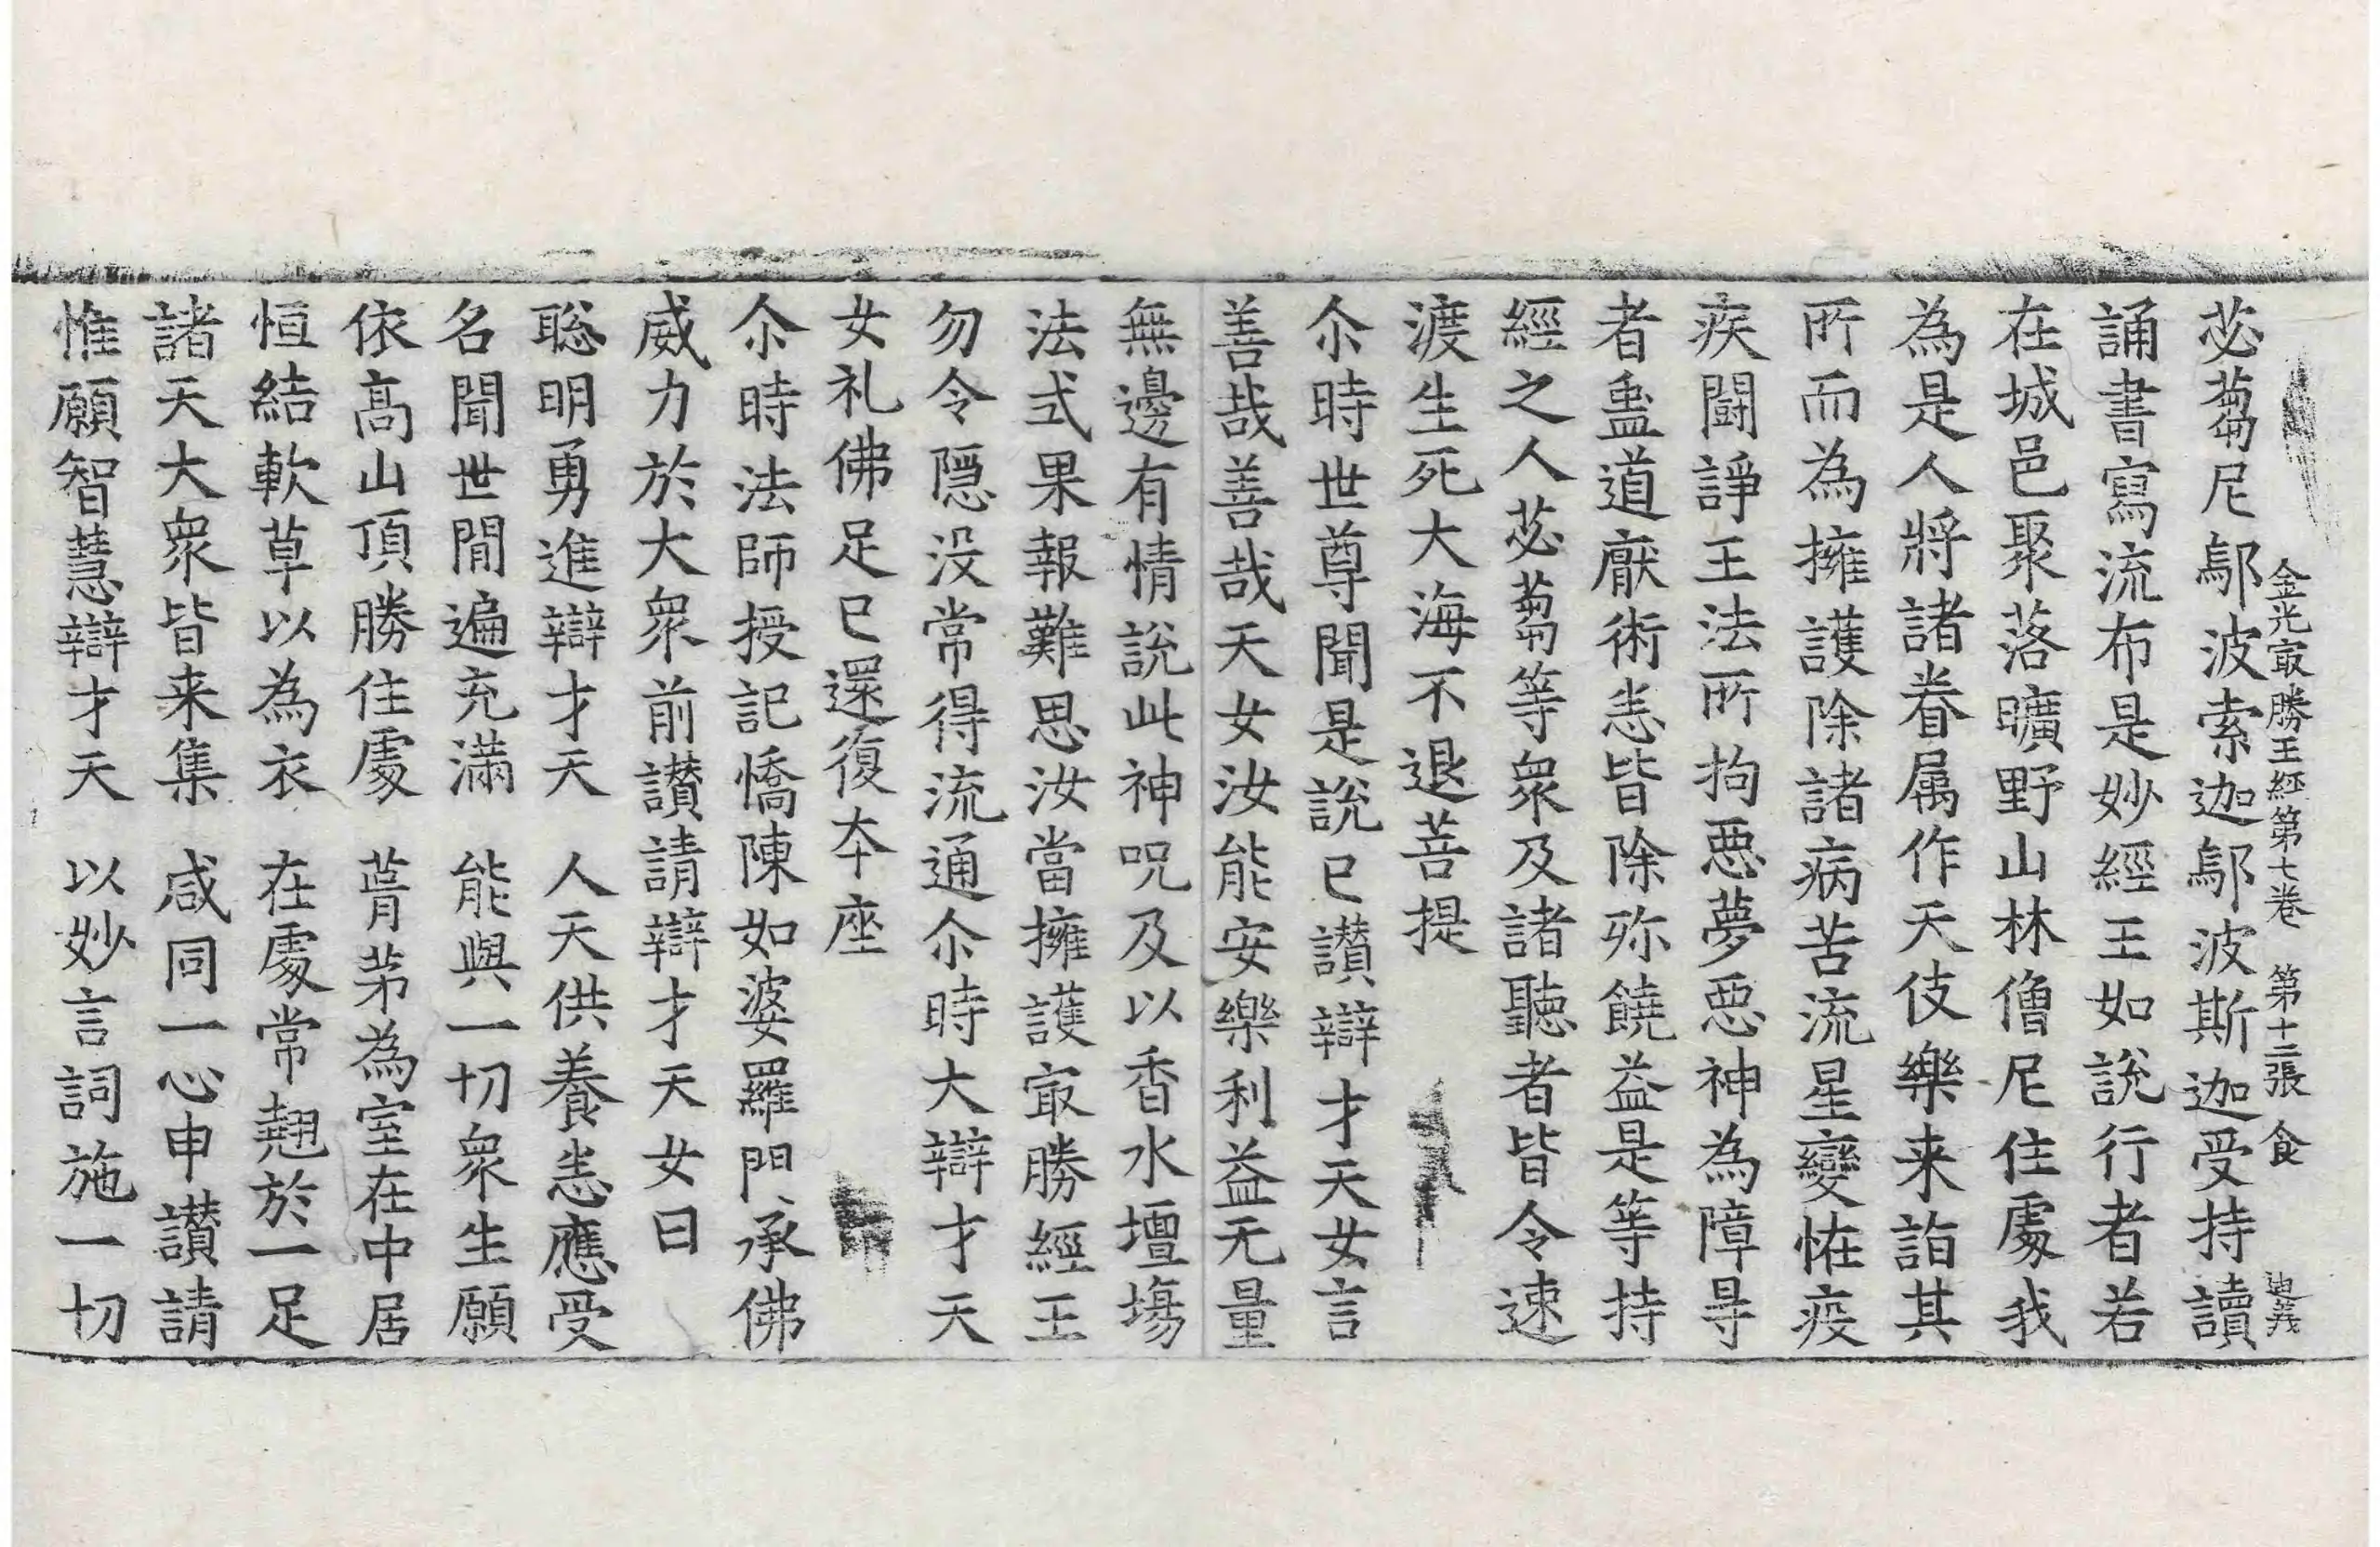 金光㝡勝王經第七卷　第十二張　食　迪義
苾蒭尼鄔波索迦鄔波斯迦受持讀
誦書寫流布是妙經王如說行者若
在城邑聚落曠野山林僧尼住處我
為是人將諸眷属作天伎樂来詣其
所而為擁護除諸病苦流星變恠疫
疾鬪諍王法所拘惡夢惡神為障㝵
者蠱道厭術悉皆除殄饒益是等持
經之人苾蒭等衆及諸聽者皆令速
渡生死大海不退菩提
尒時世尊聞是說已讃辯才天女言
善哉善哉天女汝能安樂利益无量
無邊有情說此神呪及以香水壇場
法式果報難思汝當擁護㝡勝經王
勿令隱没常得流通尒時大辯才天
女礼佛足已還復本座
尒時法師授記憍陳如婆羅門承佛
威力於大衆前讃請辯才天女曰
聡明勇進辯才天　人天供養悉應受
名聞世間遍充滿　能與一切衆生願
依高山頂勝住處　葺茅為室在中居
恒結軟草以為衣　在處常翹於一足
諸天大衆皆来集　咸同一心申讃請
惟願智慧辯才天　以妙言詞施一切